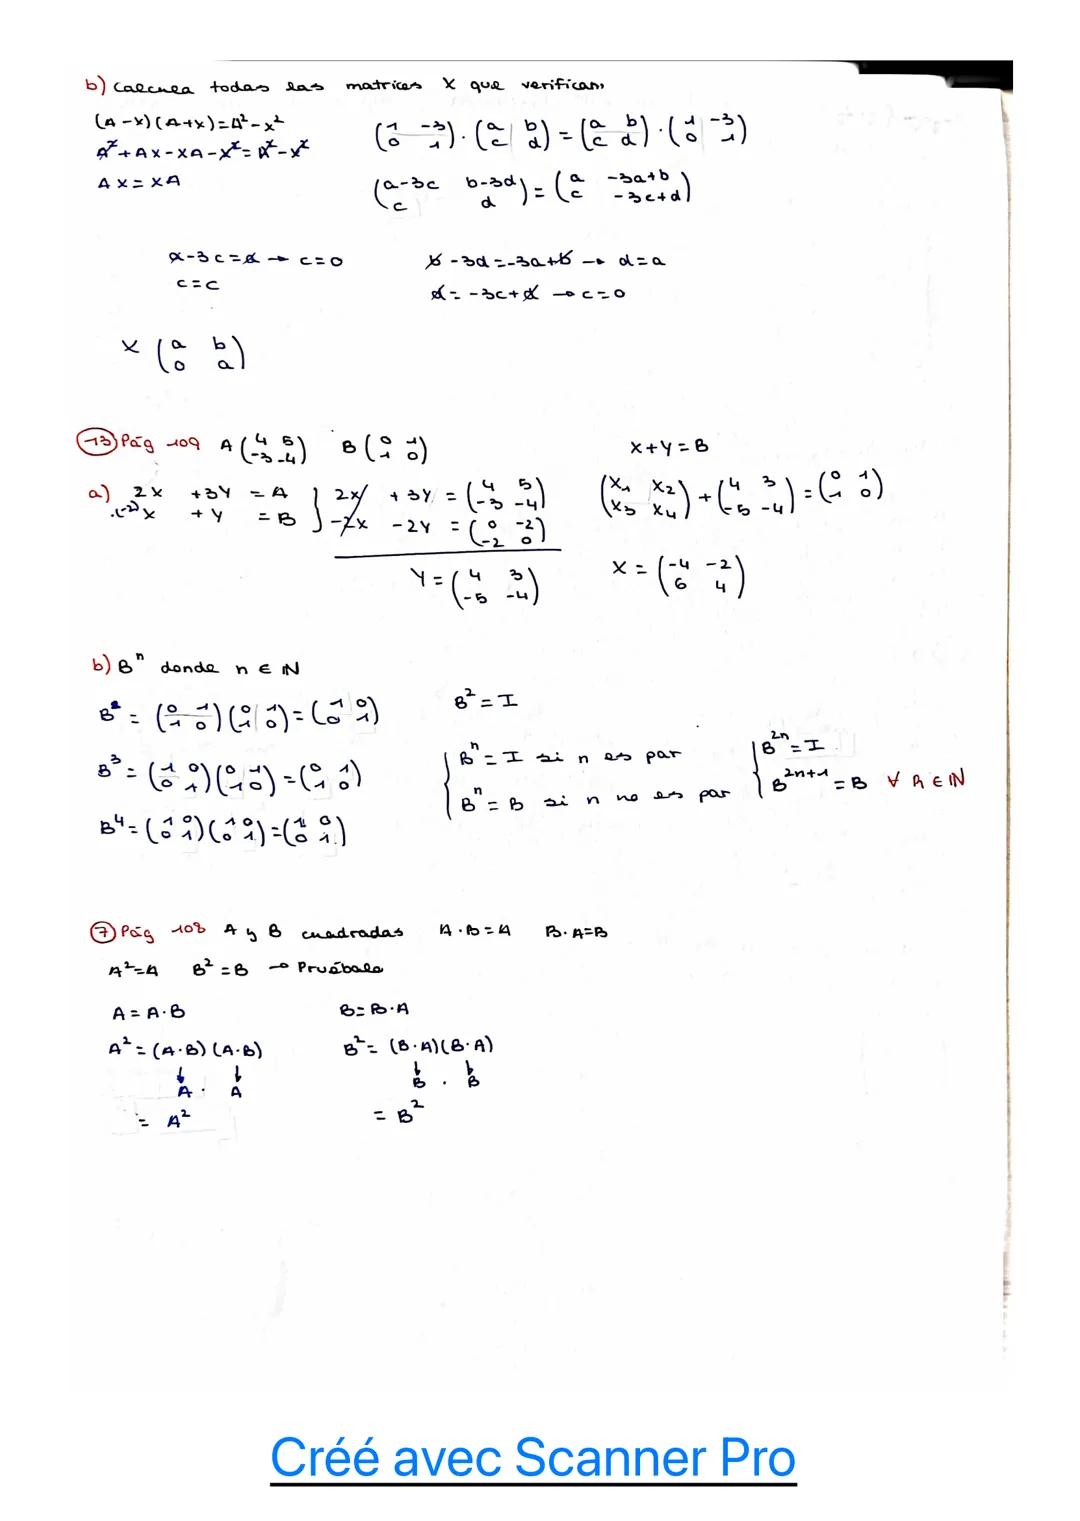 b) Calcula todas las matrices X que verifican:
(A-x)(A+x)=A²-x²
A²+AX-XA-X²=A²-X²
AX=XA
(1 -3 / 0 1)·(a b / c d)=(a b / c d)·(1 -3 / 0 1)
(a-3c b-3d / c d)=(a -3a+b / c -3c+d)
a-3c=a → c=0
c=c
b-3d=-3a+b → d=a
d=-3c+d → c=0
X (a b / 0 a)
13 Pág 109 A(4 5 / -3 -4) B(0 1 / 1 0)
a) 2x +3Y = A
·(-2) x +Y = B
2x +3Y = (4 5 / -3 -4)
-2x -2Y = (0 -2 / -2 0)
Y=(4 3 / -5 -4)
X+Y=B
(X1 X2 / X3 X4)+(4 3 / -5 -4)=(0 1 / 1 0)
X=(-4 -2 / 6 4)
b) Bⁿ donde n ∈ ℕ
B²=(0 1 / 1 0)(0 1 / 1 0)=(1 0 / 0 1)
B³=(1 0 / 0 1)(0 1 / 1 0)=(0 1 / 1 0)
B⁴=(1 0 / 0 1)(1 0 / 0 1)=(1 0 / 0 1)
B²=I
Bⁿ=I si n es par
Bⁿ=B si n no es par
B²ⁿ=I
B²ⁿ⁺¹=B ∀ n ∈ ℕ
7 Pág 108 A y B cuadradas A·B=A B·A=B
A²=A B²=B → Pruébalo
A=A·B
A²=(A·B)(A·B)
↓ ↓
A · A
= A²
B=B·A
B²=(B·A)(B·A)
↓ ↓
B · B
= B²
Créé avec Scanner Pro